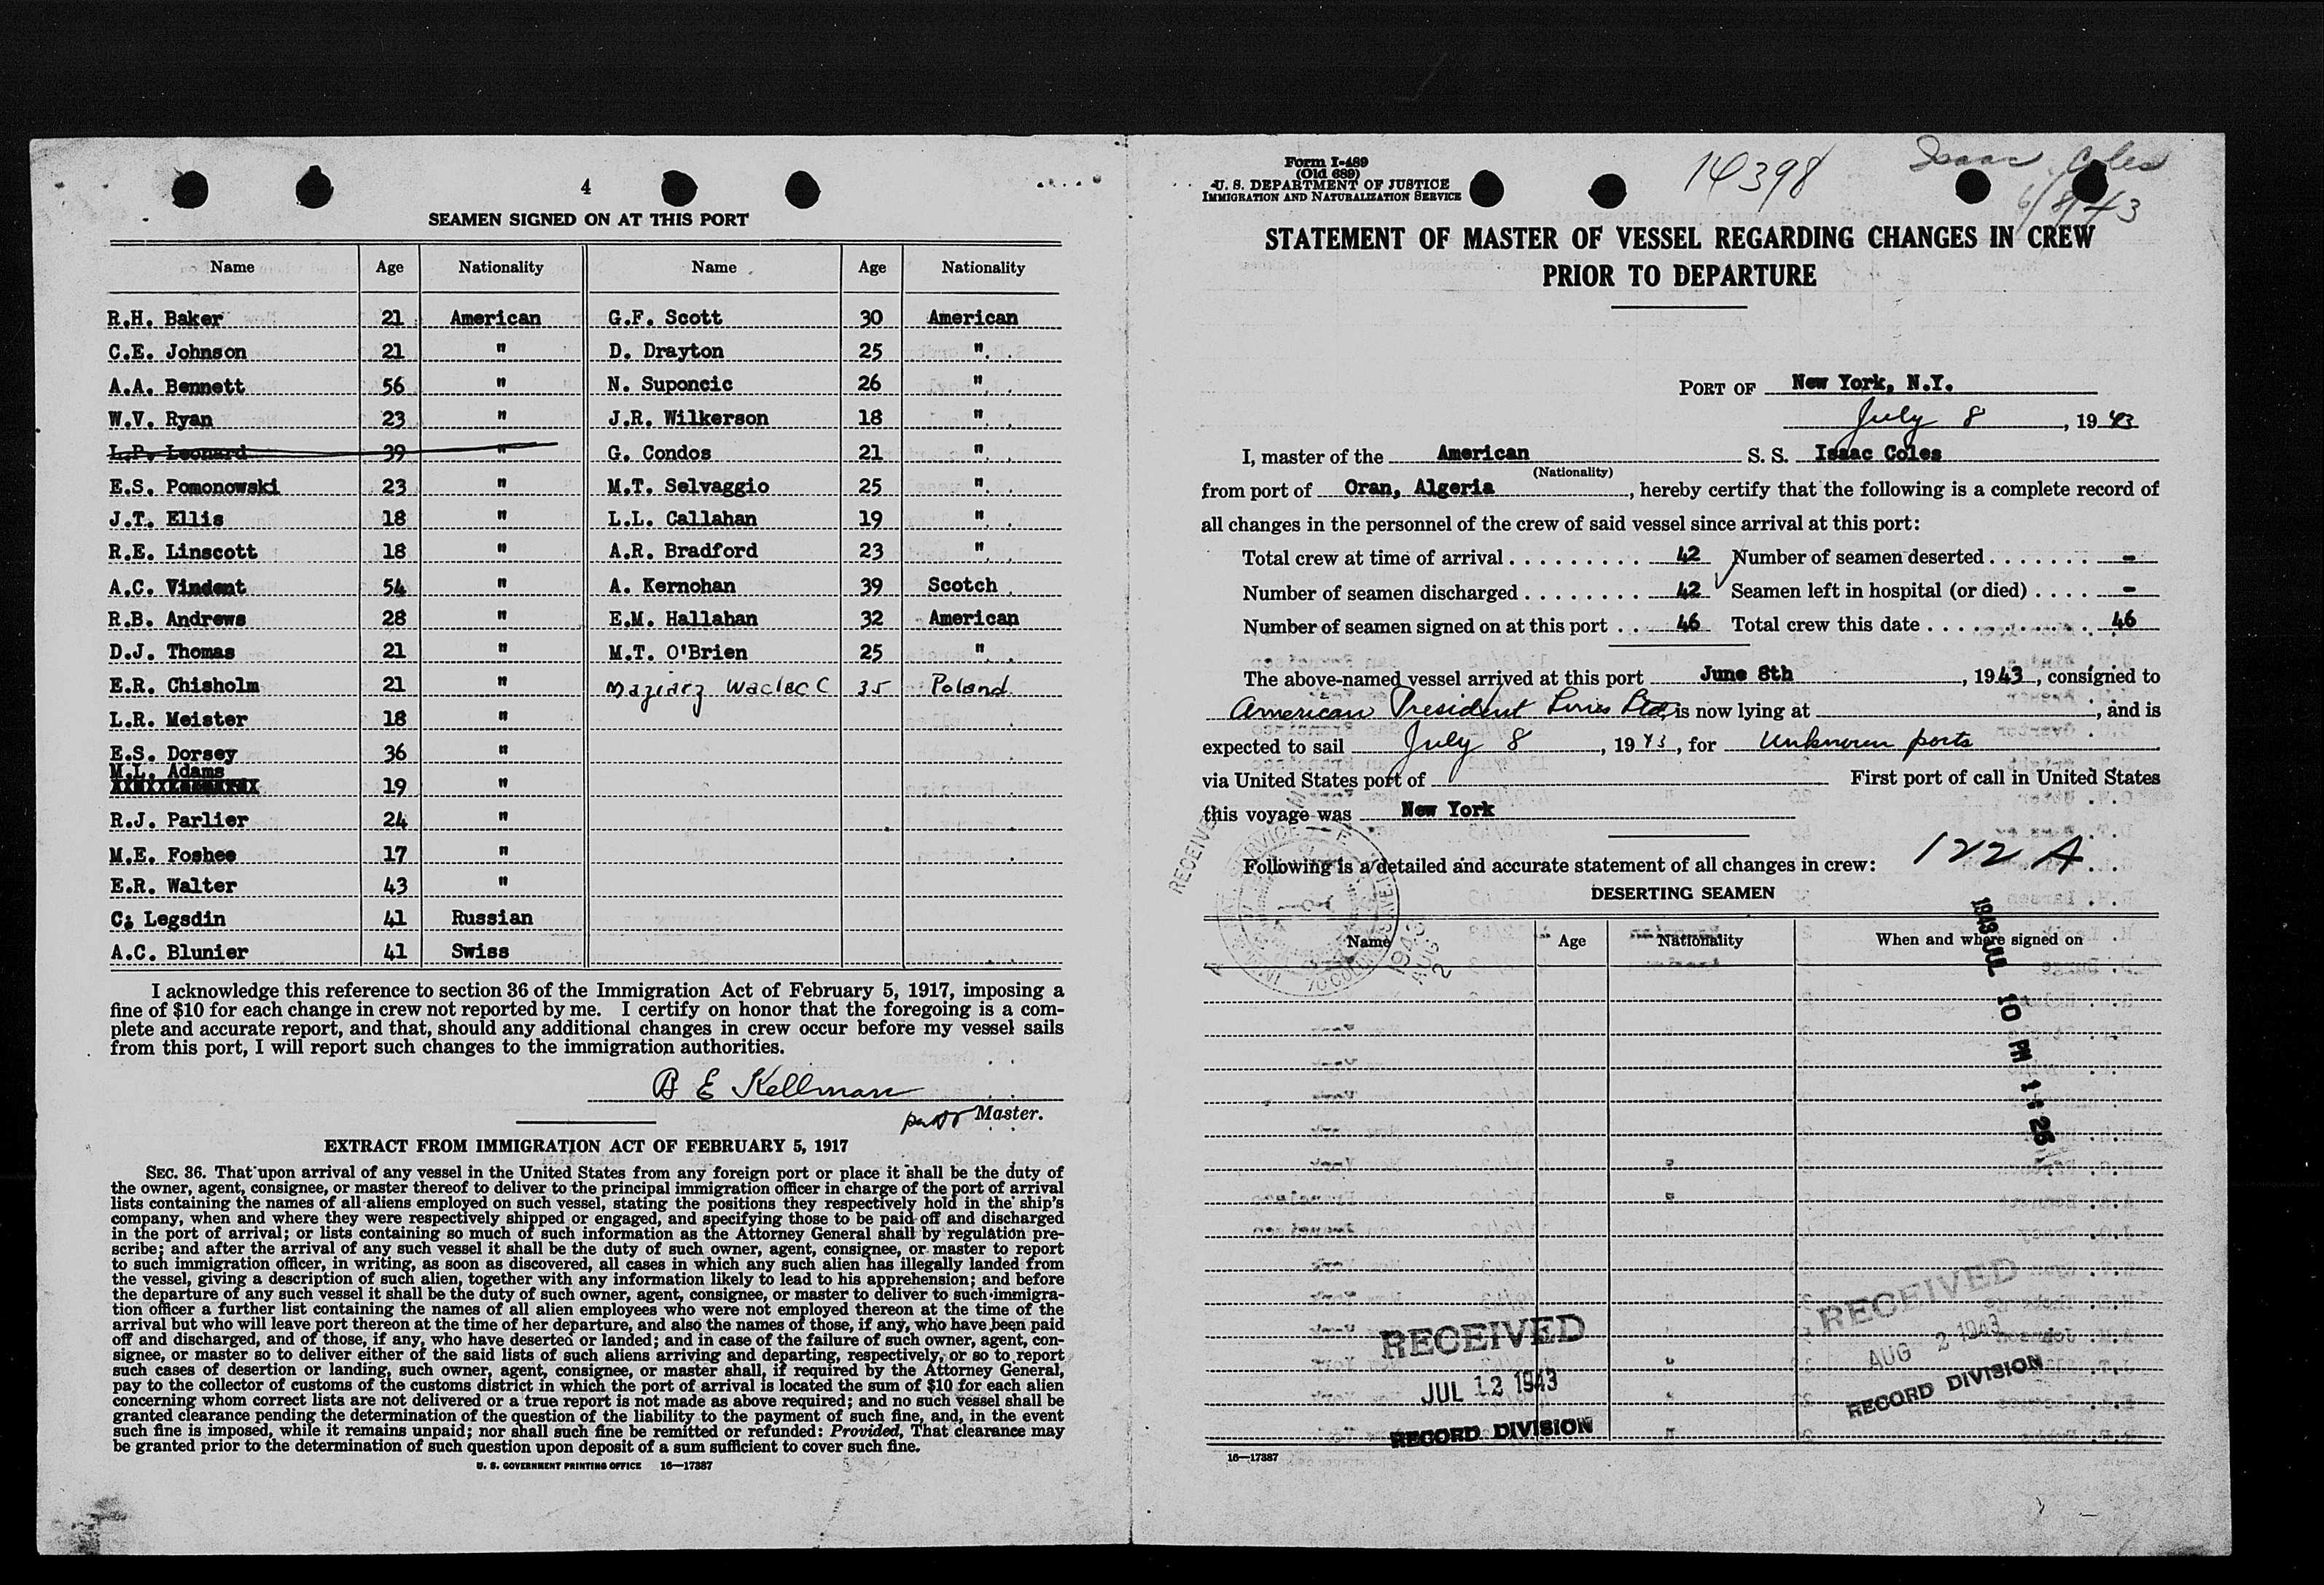 4
SEAMEN SIGNED ON AT THIS PORT
Name Age Nationality Name Age Nationality
R.H. Baker 21 American G.F. Scott 30 American
C.E. Johnson 21 " D. Drayton 25 "
A.A. Bennett 56 " N. Suponcic 26 "
W.V. Ryan 23 " J.R. Wilkerson 18 "
L.P. Leonard 39 " G. Condos 21 "
E.S. Pomonowski 23 " M.T. Selvaggio 25 "
J.T. Ellis 18 " L.L. Callahan 19 "
R.E. Linscott 18 " A.R. Bradford 23 "
A.C. Vindent 54 " A. Kernohan 39 Scotch
R.B. Andrews 28 " E.M. Hallahan 32 American
D.J. Thomas 21 " M.T. O'Brien 25 "
E.R. Chisholm 21 " Maziarz Waclac C 35 Poland
L.R. Meister 18 "
E.S. Dorsey 36 "
M.L. Adams
19 "
R.J. Parlier 24 "
M.E. Foshee 17 "
E.R. Walter 43 "
C; Legsdin 41 Russian
A.C. Blunier 41 Swiss
I acknowledge this reference to section 36 of the Immigration Act of February 5, 1917, imposing a
fine of $10 for each change in crew not reported by me. I certify on honor that the foregoing is a com-
plete and accurate report, and that, should any additional changes in crew occur before my vessel sails
from this port, I will report such changes to the immigration authorities.
B E Kellman
Master.
EXTRACT FROM IMMIGRATION ACT OF FEBRUARY 5, 1917
SEC. 36. That upon arrival of any vessel in the United States from any foreign port or place it shall be the duty of
the owner, agent, consignee, or master thereof to deliver to the principal immigration officer in charge of the port of arrival
lists containing the names of all aliens employed on such vessel, stating the positions they respectively hold in the ship's
company, when and where they were respectively shipped or engaged, and specifying those to be paid off and discharged
in the port of arrival; or lists containing so much of such information as the Attorney General shall by regulation pre-
scribe; and after the arrival of any such vessel it shall be the duty of such owner, agent, consignee, or master to report
to such immigration officer, in writing, as soon as discovered, all cases in which any such alien has illegally landed from
the vessel, giving a description of such alien, together with any information likely to lead to his apprehension; and before
the departure of any such vessel it shall be the duty of such owner, agent, consignee, or master to deliver to such immigra-
tion officer a further list containing the names of all alien employees who were not employed thereon at the time of the
arrival but who will leave port thereon at the time of her departure, and also the names of those, if any, who have been paid
off and discharged, and of those, if any, who have deserted or landed; and in case of the failure of such owner, agent, con-
signee, or master so to deliver either of the said lists of such aliens arriving and departing, respectively, or so to report
such cases of desertion or landing, such owner, agent, consignee, or master shall, if required by the Attorney General,
pay to the collector of customs of the customs district in which the port of arrival is located the sum of $10 for each alien
concerning whom correct lists are not delivered or a true report is not made as above required; and no such vessel shall be
granted clearance pending the determination of the question of the liability to the payment of such fine, and, in the event
such fine is imposed, while it remains unpaid; nor shall such fine be remitted or refunded: Provided, That clearance may
be granted prior to the determination of such question upon deposit of a sum sufficient to cover such fine.
U. S. GOVERNMENT PRINTING OFFICE 16—17387
Form I-489
(Old 689)
U. S. DEPARTMENT OF JUSTICE
IMMIGRATION AND NATURALIZATION SERVICE
14398
Isaac Coles
6/8/43
STATEMENT OF MASTER OF VESSEL REGARDING CHANGES IN CREW
PRIOR TO DEPARTURE
PORT OF New York, N.Y.
July 8, 1943
I, master of the American S. S. Isaac Coles
(Nationality)
from port of Oran, Algeria, hereby certify that the following is a complete record of
all changes in the personnel of the crew of said vessel since arrival at this port:
Total crew at time of arrival . . . . . . . . . 42 Number of seamen deserted . . . . . . . -
Number of seamen discharged . . . . . . . . 42 Seamen left in hospital (or died) . . . . -
Number of seamen signed on at this port . . 46 Total crew this date . . . . . . . . . . . . 46
The above-named vessel arrived at this port June 8th, 1943, consigned to
American President Lines Ltd, is now lying at , and is
expected to sail July 8, 1943, for Unknown ports
via United States port of First port of call in United States
this voyage was New York
Following is a detailed and accurate statement of all changes in crew:
122 A
DESERTING SEAMEN
Name Age Nationality When and where signed on
1943 JUL 10 PM 1:25
RECEIVED
1943 AUG 2
RECEIVED
JUL 12 1943
RECORD DIVISION
RECEIVED
AUG 2 1943
RECORD DIVISION
16—17387